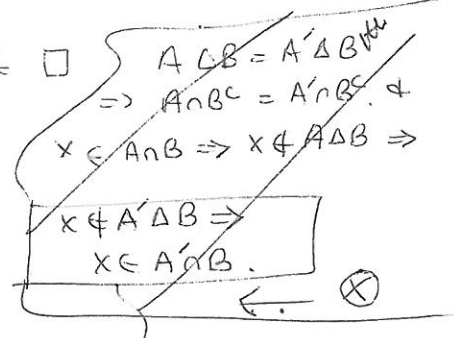 = □
A △ B = A′ Δ B
=> A∩Bᶜ = A′∩Bᶜ. &
x ∈ A∩B => x ∉ AΔB =>
x ∉ A′ΔB =>
x ∈ A′∩B.
← ⊗